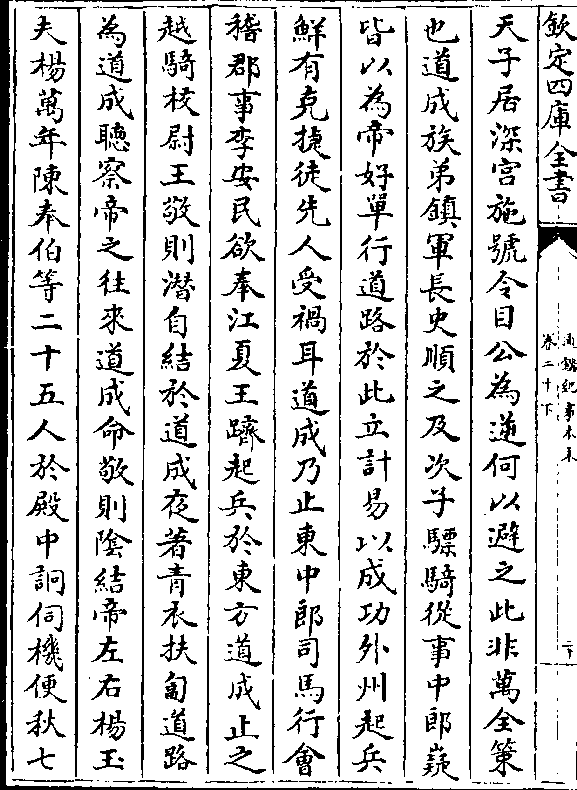 欽定四庫全書
通鑑紀事本末
卷二十下
天子居深宫施號令目公為逆何以避之此非萬全策
也道成族弟鎮軍長史順之及次子驃騎從事中郎嶷
皆以為帝好單行道路於此立計易以成功外州起兵
鮮有克捷徒先人受禍耳道成乃止東中郎司馬行會
稽郡事李安民欲奉江夏王躋起兵於東方道成止之
越騎校尉王敬則潛自結於道成夜著青衣扶匐道路
為道成聽察帝之往來道成命敬則隂結帝左右楊玉
夫楊萬年陳奉伯等二十五人於殿中詗伺機便秋七